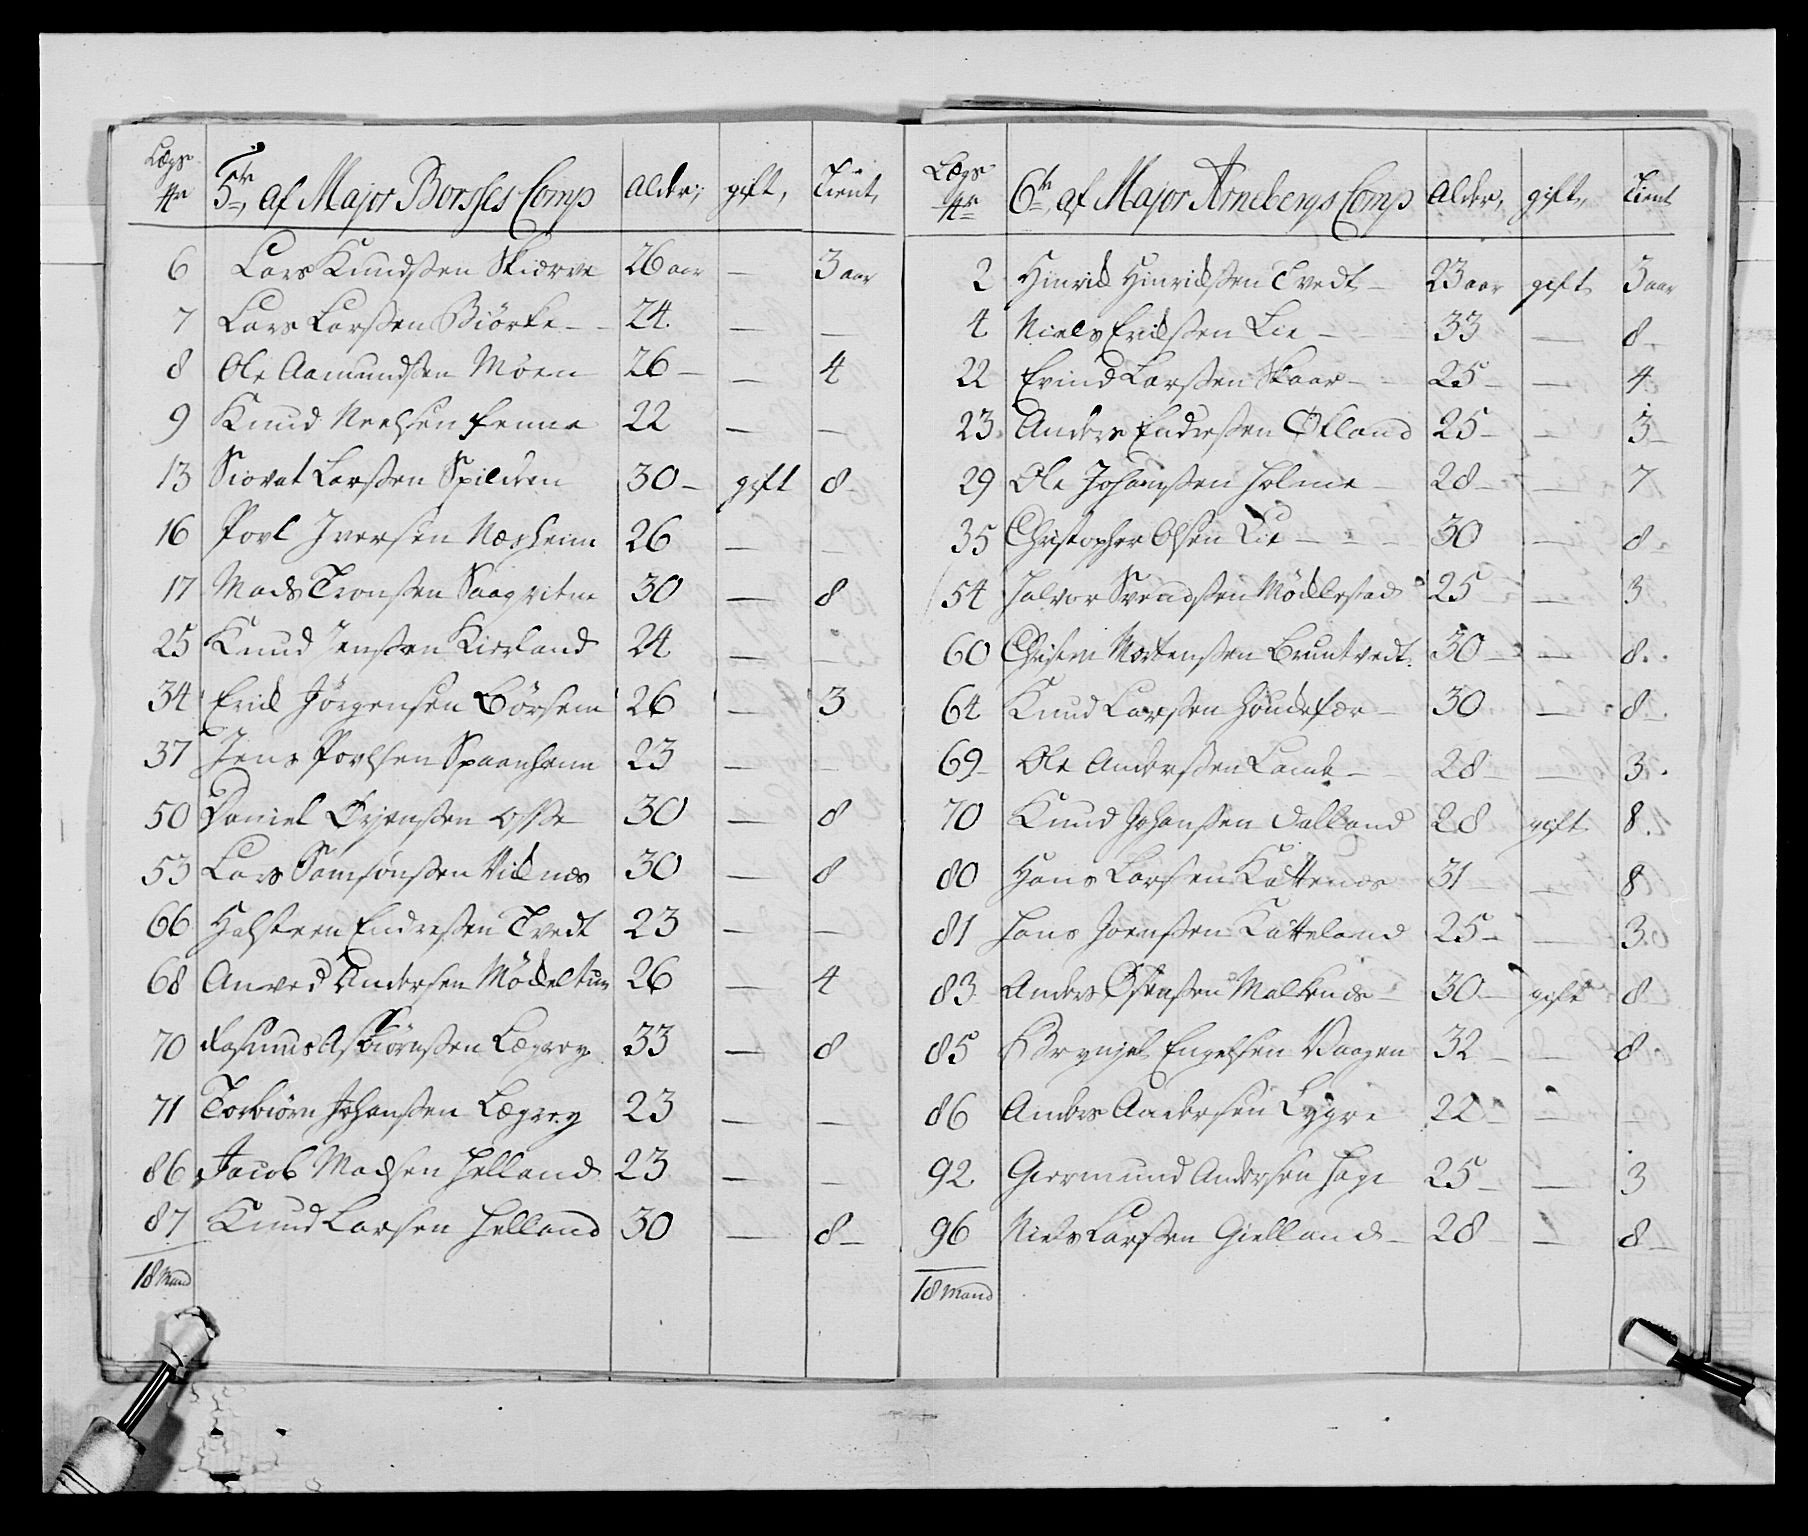 Lægs Nr 5te af Major Borsses Comp Alder, gift, Tient,
6 Lars Knudssen Skierve 26 aar — 3 aar
7 Lars Larssen Biörke — 24. — —
8 Ole Aamundssen Möen 26 — — 4
9 Knud Neelsen Fenne 22 — —
13 Siovat Larssen Spilden 30 — gift 8 —
16 Povl Iversen Næsheim 26 — —
17 Mads Tronssen Saaqvitne 30 — 8
25 Knud Jenssen Kierland 24 — —
34 Erick Jörgensen Börsem 26 — 3
37 Jens Povlsen Spaanheim 23 — —
50 Daniel Öyenssen Osse 30 — 8
53 Lars Samsonssen Vicknæs 30 — 8
66 Halsteen Endressen Tvedt 23 — —
68 Anved Andersen Möckeltun 26 — 4
70 Rasmus Asbiörnssen Lægrey 33 — 8
71 Torbiörn Johanssen Lægrey 23 — —
86 Jacob Madsen Helland 23 — —
87 Knud Larsen Helland 30 — 8 —
18 Mand
Lægs Nr 6te af Major Arnebergs Comp Alder, gift, Tient
2 Hinrick Hinrickssen Tvedt — 23 aar gift 3 aar
4 Niels Erickssen Lie — 33 — 8 —
22 Evind Larssen Skaar — 25 — — 4
23. Anders Endressen Ökland 25 — — 3 —
29 Ole Johanssen Holme 28 — — 7
35 Christopher Olsen Lie — 30 — 8
54 Halvor Svendssen Möcklestad 25 — 3
60 Christen Mortenssen Bruntvedt. 30 — — 8.
64 Knud Larssen Hondefær — 30 — 8 —
69 — Ole Anderssen Lande — 28 — — 3.
70 Knud Johanssen Dalland 28 gift 8.
80 Hans Larssen Kattenæs 31 — 8
81 Hans Joenssen Katteland 25 — — 3
83 Anders Össenssen Malkenæs — 30 — gift 8
85 Brynjel Engelsen Vaagen 32 — — 8
86 Anders Andersen Lygre 22 — — —
92. Giermund Andersen Hage 25 — — 3
96 Niels Larssen Gielland — 28 — 8 —
18 Mand